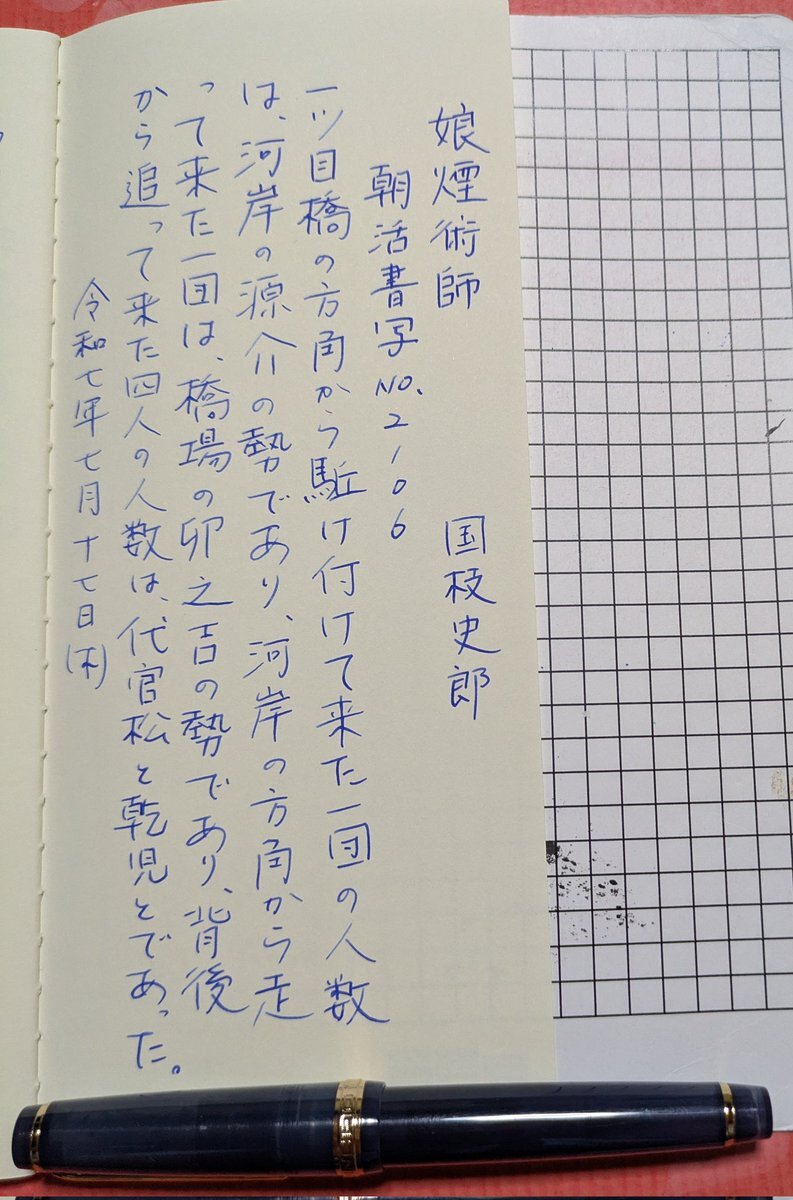 娘煙術師　国枝史郎
朝活書写NO.2106
一ツ目橋の方角から駈け付けて来た一団の人数
は、河岸の源介の勢であり、河岸の方角から走
って来た一団は、橋場の卯之吉の勢であり、背後
から追って来た四人の人数は、代官松と乾児とであった。
令和七年七月十七日(木)